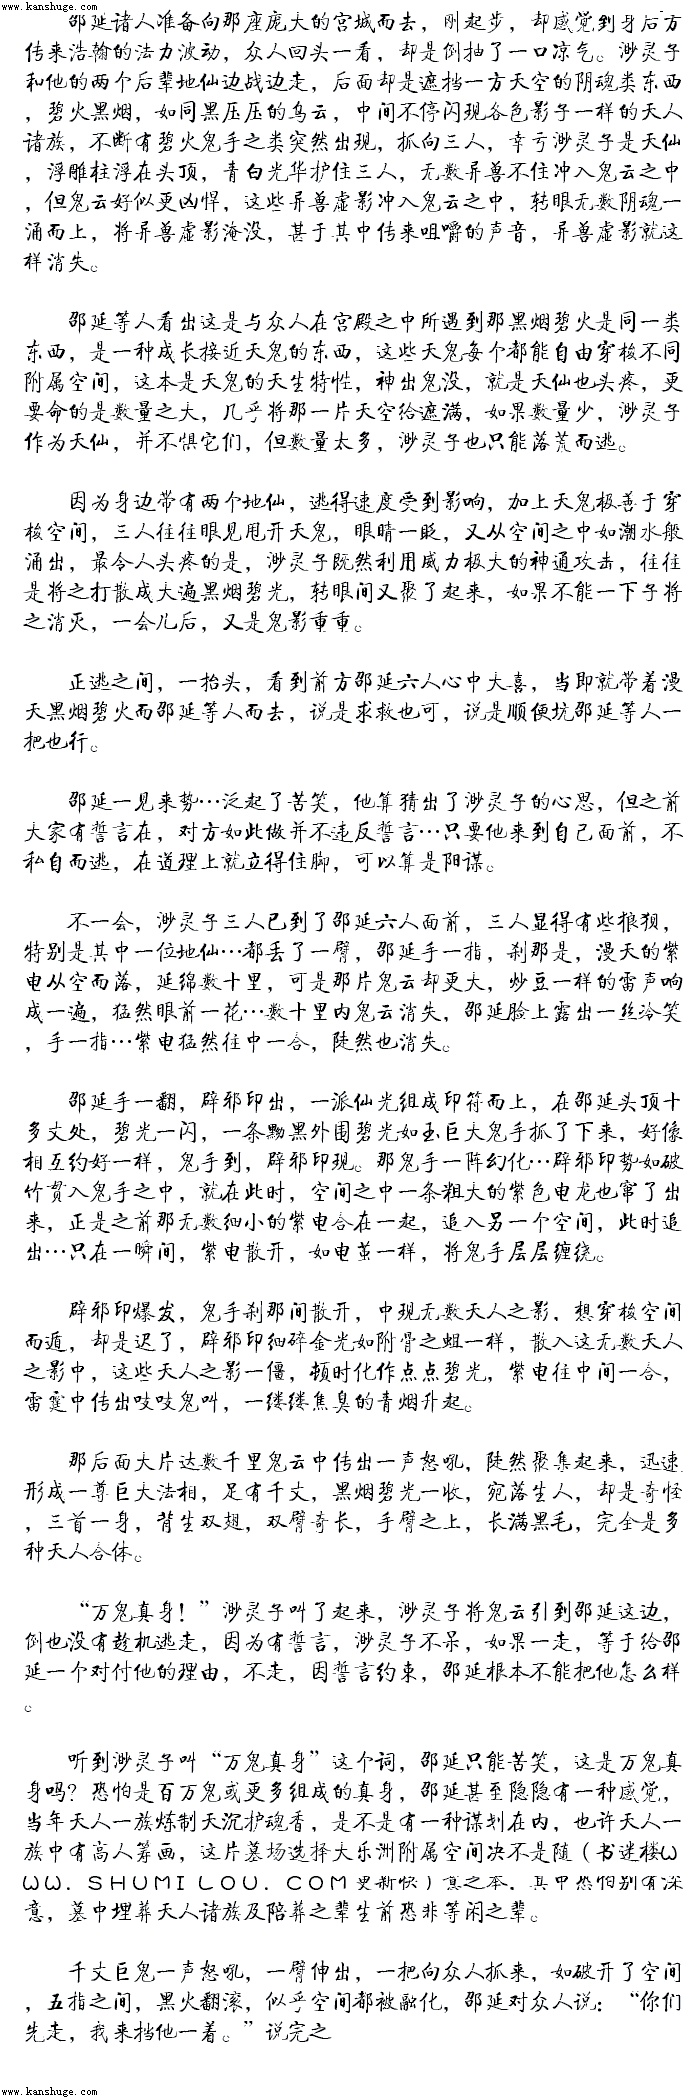 www.kanshuge.com
邵延诸人准备向那座庞大的宫城而去，刚起步，却感觉到身后方
传来浩翰的法力波动，众人回头一看，却是倒抽了一口凉气。渺灵子
和他的两个后辈地仙边战边走，后面却是遮挡一方天空的阴魂类东西
，碧火黑烟，如同黑压压的乌云，中间不停闪现各色影子一样的天人
诸族，不断有碧火鬼手之类突然出现，抓向三人，幸亏渺灵子是天仙
，浮雕柱浮在头顶，青白光华护住三人，无数异兽不住冲入鬼云之中
，但鬼云好似更凶悍，这些异兽虚影冲入鬼云之中，转眼无数阴魂一
涌而上，将异兽虚影淹没，甚于其中传来咀嚼的声音，异兽虚影就这
样消失。
邵延等人看出这是与众人在宫殿之中所遇到那黑烟碧火是同一类
东西，是一种成长接近天鬼的东西，这些天鬼每个都能自由穿梭不同
附属空间，这本是天鬼的天生特性，神出鬼没，就是天仙也头疼，更
要命的是数量之大，几乎将那一片天空给遮满，如果数量少，渺灵子
作为天仙，并不惧它们，但数量太多，渺灵子也只能落荒而逃。
因为身边带有两个地仙，逃得速度受到影响，加上天鬼极善于穿
梭空间，三人往往眼见甩开天鬼，眼睛一眨，又从空间之中如潮水般
涌出，最令人头疼的是，渺灵子既然利用威力极大的神通攻击，往往
是将之打散成大遍黑烟碧光，转眼间又聚了起来，如果不能一下子将
之消灭，一会儿后，又是鬼影重重。
正逃之间，一抬头，看到前方邵延六人心中大喜，当即就带着漫
天黑烟碧火而邵延等人而去，说是求救也可，说是顺便坑邵延等人一
把也行。
邵延一见来势…泛起了苦笑，他算猜出了渺灵子的心思，但之前
大家有誓言在，对方如此做并不违反誓言…只要他来到自己面前，不
私自而逃，在道理上就立得住脚，可以算是阳谋。
不一会，渺灵子三人已到了邵延六人面前，三人显得有些狼狈，
特别是其中一位地仙…都丢了一臂，邵延手一指，刹那是，漫天的紫
电从空而落，延绵数十里，可是那片鬼云却更大，炒豆一样的雷声响
成一遍，猛然眼前一花…数十里内鬼云消失，邵延脸上露出一丝冷笑
，手一指…紫电猛然往中一合，陡然也消失。
邵延手一翻，辟邪印出，一派仙光组成印符而上，在邵延头顶十
多丈处，碧光一闪，一条黝黑外围碧光如玉巨大鬼手抓了下来，好像
相互约好一样，鬼手到，辟邪印现。那鬼手一阵幻化…辟邪印势如破
竹贯入鬼手之中，就在此时，空间之中一条粗大的紫色电龙也窜了出
来，正是之前那无数细小的紫电合在一起，追入另一个空间，此时追
出…只在一瞬间，紫电散开，如电茧一样，将鬼手层层缠绕。
辟邪印爆发，鬼手刹那间散开，中现无数天人之影，想穿梭空间
而遁，却是迟了，辟邪印细碎金光如附骨之蛆一样，散入这无数天人
之影中，这些天人之影一僵，顿时化作点点碧光，紫电往中间一合，
雷霆中传出吱吱鬼叫，一缕缕焦臭的青烟升起。
那后面大片达数千里鬼云中传出一声怒吼，陡然聚集起来，迅速
形成一尊巨大法相，足有千丈，黑烟碧光一收，宛落生人，却是奇怪
，三首一身，背生双翅，双臂奇长，手臂之上，长满黑毛，完全是多
种天人合体。
“万鬼真身！”渺灵子叫了起来，渺灵子将鬼云引到邵延这边，
倒也没有趁机逃走，因为有誓言，渺灵子不呆，如果一走，等于给邵
延一个对付他的理由，不走，因誓言约束，邵延根本不能把他怎么样
。
听到渺灵子叫“万鬼真身”这个词，邵延只能苦笑，这是万鬼真
身吗？恐怕是百万鬼或更多组成的真身，邵延甚至隐隐有一种感觉，
当年天人一族炼制天沉护魂香，是不是有一种谋划在内，也许天人一
族中有高人筹画，这片墓场选择大乐洲附属空间决不是随（书迷楼W
WW．SHUMILOU．COM更新快）意之举，其中恐怕别有深
意，墓中埋葬天人诸族及陪葬之辈生前恐非等闲之辈。
千丈巨鬼一声怒吼，一臂伸出，一把向众人抓来，如破开了空间
，五指之间，黑火翻滚，似乎空间都被融化，邵延对众人说：“你们
先走，我来挡他一着。”说完之
www.kanshuge.com